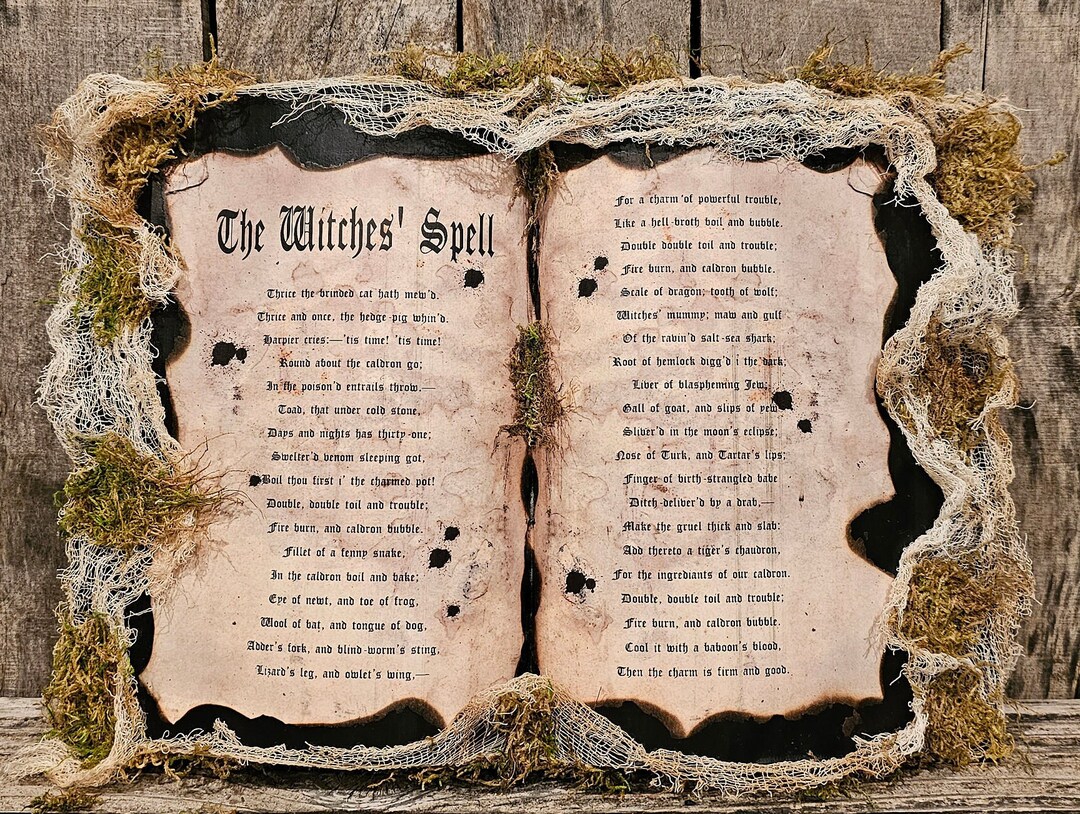 The Witches' Spell
Thrice the brinded cat hath mew'd.
Thrice and once, the hedge-pig whin'd.
Harpier cries:—'tis time! 'tis time!
Round about the caldron go;
In the poison'd entrails throw.—
Toad, that under cold stone,
Days and nights has thirty-one;
Swelter'd venom sleeping got,
Boil thou first i' the charmed pot!
Double, double toil and trouble;
Fire burn, and caldron bubble.
Fillet of a fenny snake,
In the caldron boil and bake;
Eye of newt, and toe of frog,
Wool of bat, and tongue of dog,
Adder's fork, and blind-worm's sting,
Lizard's leg, and owlet's wing,—
For a charm of powerful trouble,
Like a hell-broth boil and bubble.
Double double toil and trouble;
Fire burn, and caldron bubble.
Scale of dragon; tooth of wolf;
Witches' mummy; maw and gulf
Of the ravin'd salt-sea shark;
Root of hemlock digg'd i the dark;
Liver of blaspheming Jew;
Gall of goat, and slips of yew
Sliver'd in the moon's eclipse;
Nose of Turk, and Tartar's lips;
Finger of birth-strangled babe
Ditch-deliver'd by a drab,—
Make the gruel thick and slab:
Add thereto a tiger's chaudron,
For the ingrediants of our caldron.
Double, double toil and trouble;
Fire burn, and caldron bubble.
Cool it with a baboon's blood,
Then the charm is firm and good.